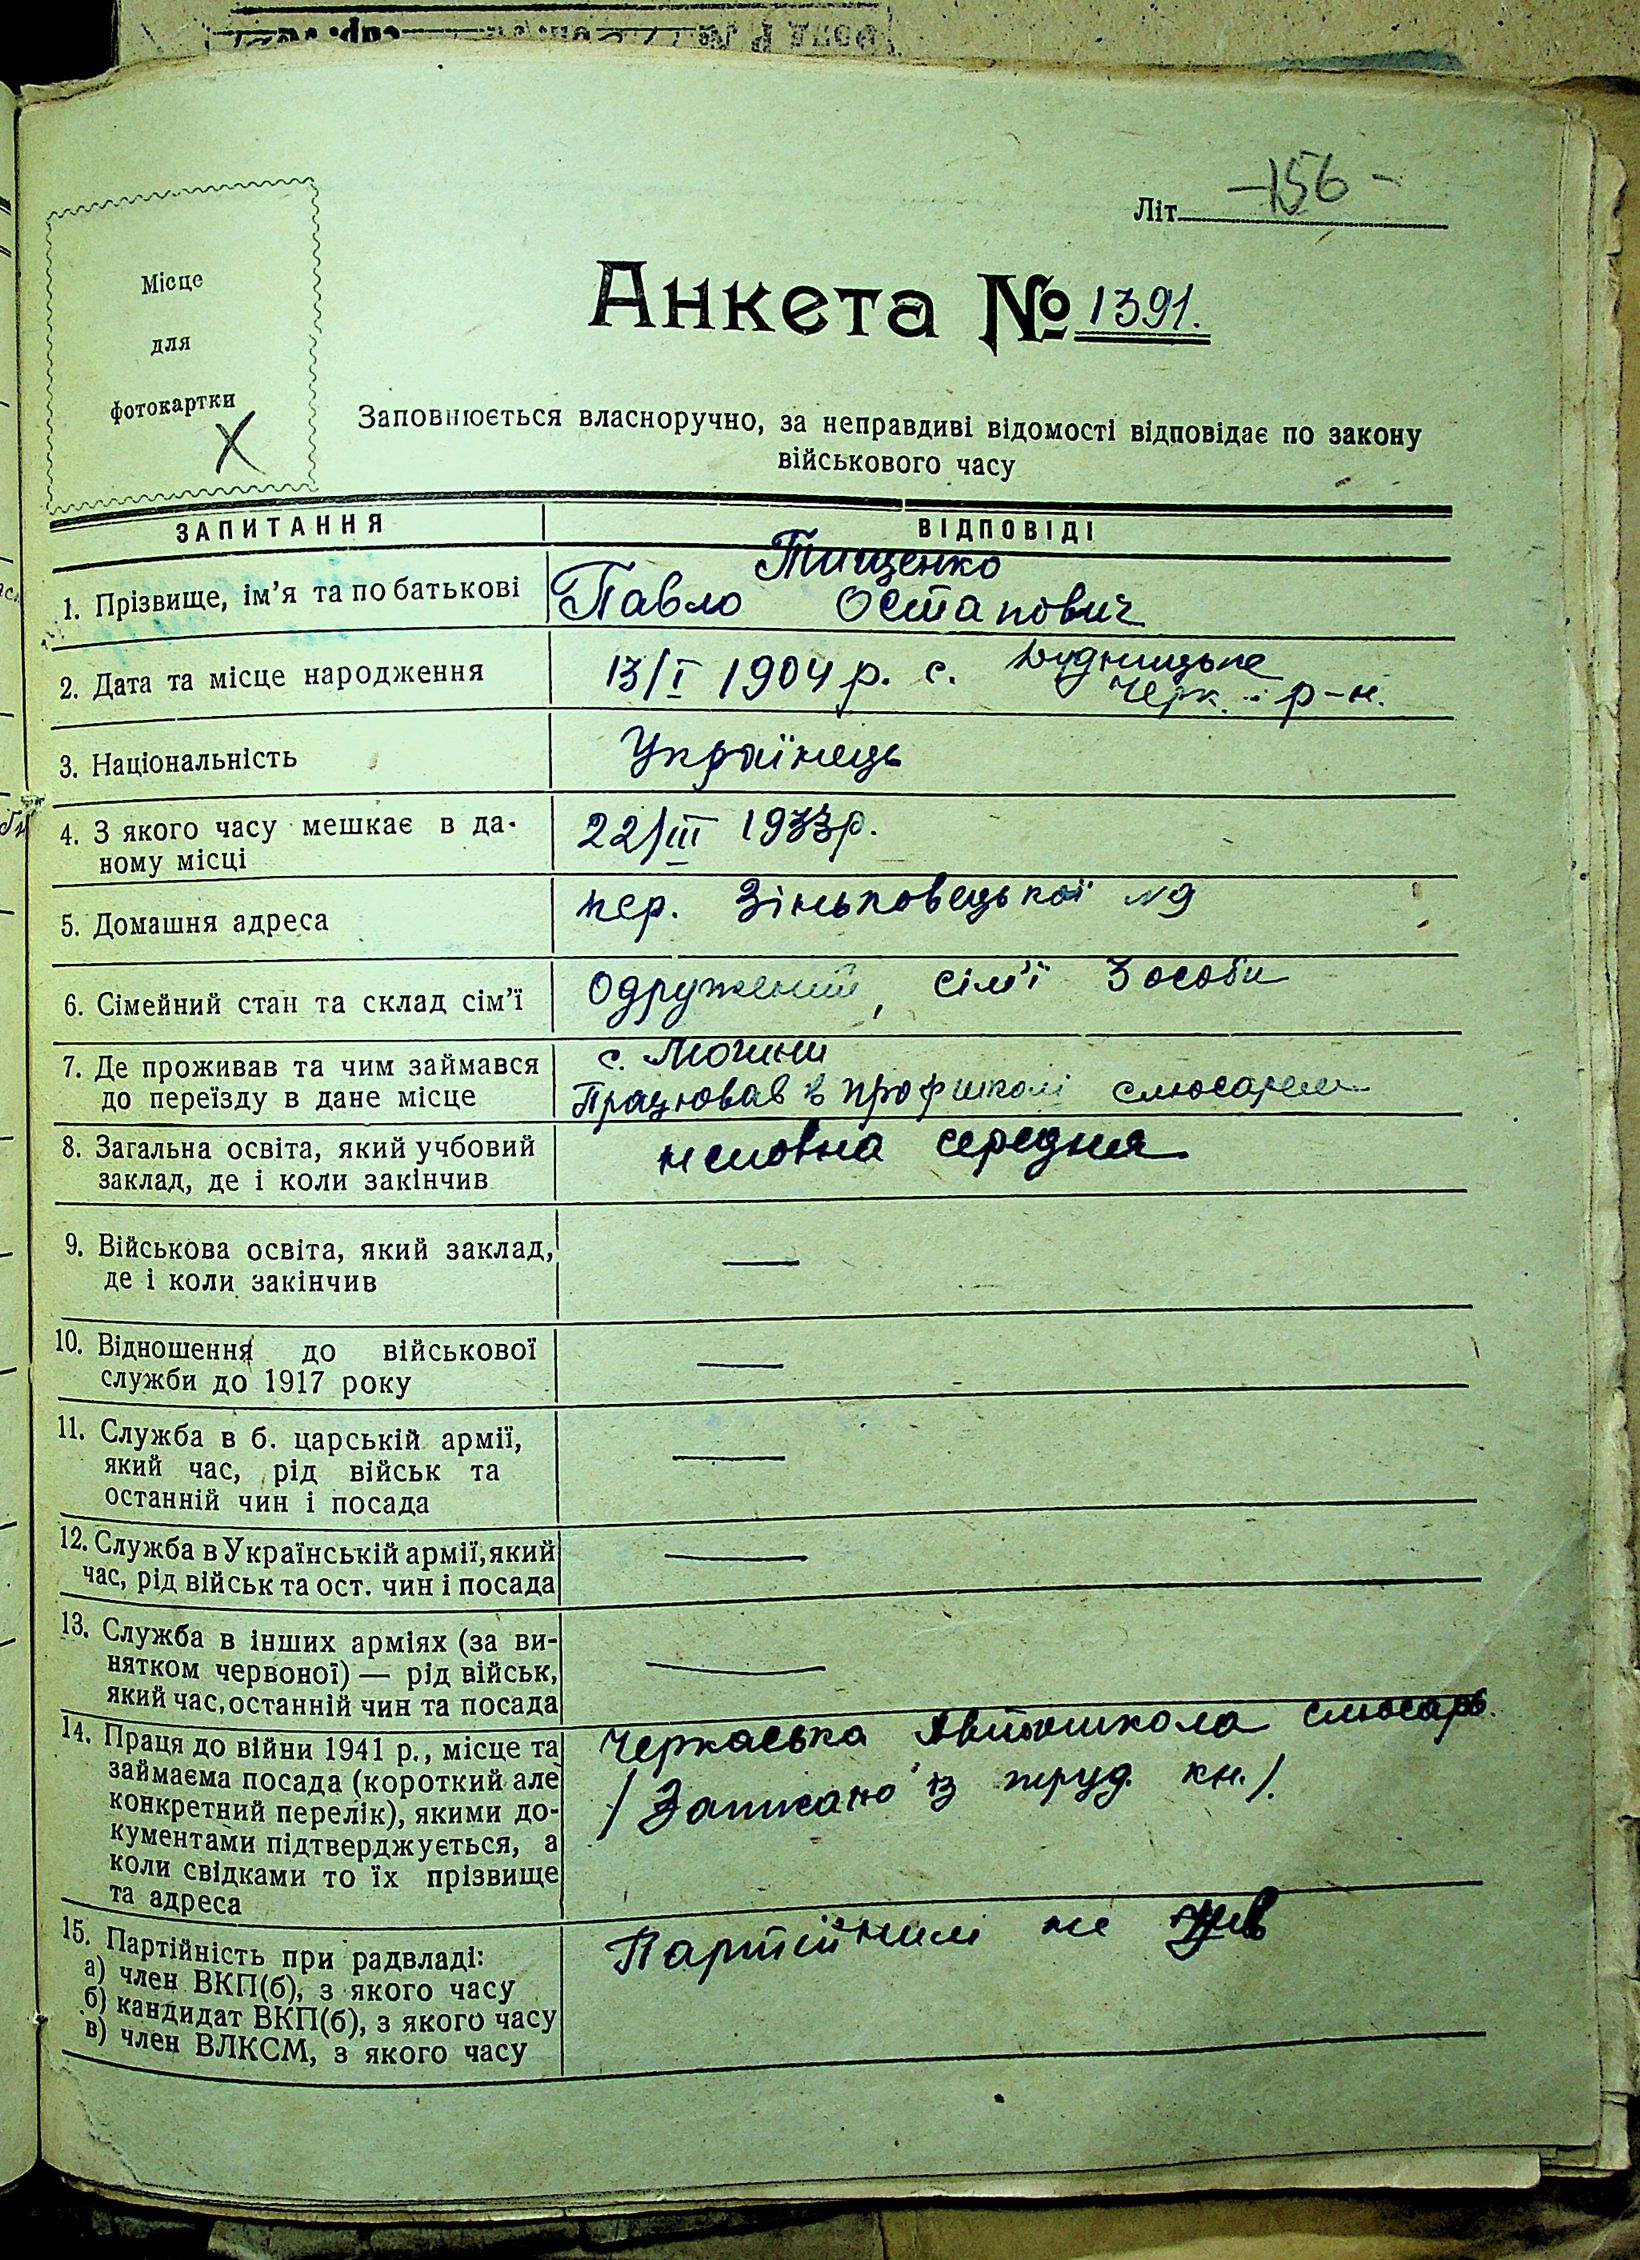 Літ. -156-
Місце
для
фотокартки
Х
Анкета № 1391.
Заповнюється власноручно, за неправдиві відомості відповідає по закону
військового часу
ЗАПИТАННЯ
ВІДПОВІДІ
1. Прізвище, ім'я та по батькові
Тищенко
Павло Остапович
2. Дата та місце народження
13/I 1904 р. с. Будницьке
Черк. р-н.
3. Національність
Українець
4. З якого часу мешкає в да-
ному місці
22/III 1933р.
5. Домашня адреса
пер. Зіньковецької №9
6. Сімейний стан та склад сім'ї
Одружений, сім'ї 3 особи
7. Де проживав та чим займався
до переїзду в дане місце
с.
Працював в профшколі слюсарем
8. Загальна освіта, який учбовий
заклад, де і коли закінчив
неповна середня
9. Військова освіта, який заклад,
де і коли закінчив
—
10. Відношення до військової
служби до 1917 року
—
11. Служба в б. царській армії,
який час, рід військ та
останній чин і посада
—
12. Служба в Українській армії, який
час, рід військ та ост. чин і посада
—
13. Служба в інших арміях (за ви-
нятком червоної) — рід військ,
який час, останній чин та посада
—
14. Праця до війни 1941 р., місце та
займаєма посада (короткий але
конкретний перелік), якими до-
кументами підтверджується, а
коли свідками то їх прізвище
та адреса
Черкаська Автошкола слюсарь.
/Записано із труд. кн./.
15. Партійність при радвладі:
а) член ВКП(б), з якого часу
б) кандидат ВКП(б), з якого часу
в) член ВЛКСМ, з якого часу
Партійним не був